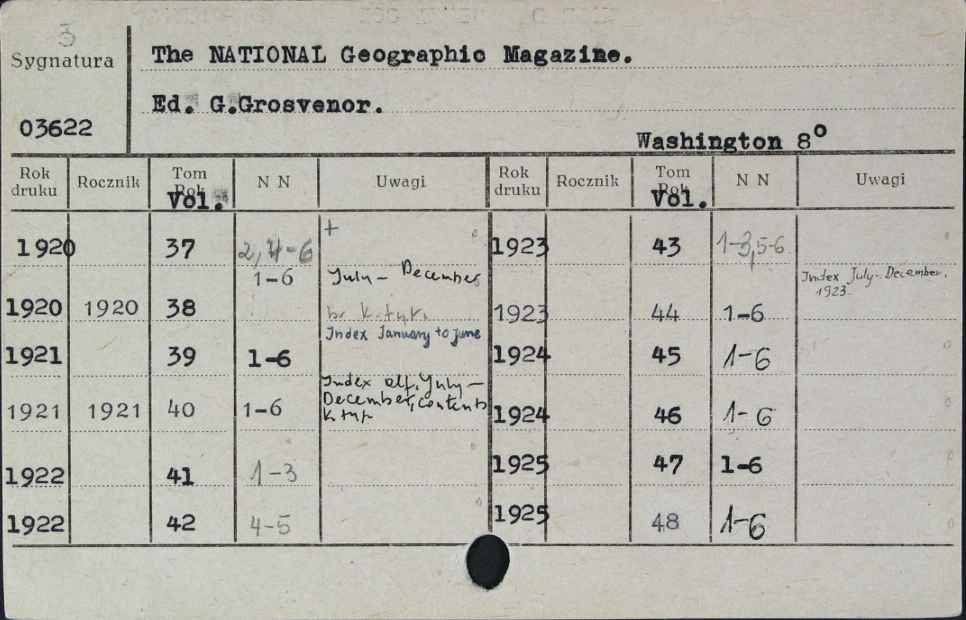 3
Sygnatura
The NATIONAL Geographic Magazine.
Ed. G.Grosvenor.
03622
Washington 8°
Rok druku Rocznik Tom Rok Vol. N N Uwagi Rok druku Rocznik Tom Rok Vol. N N Uwagi
1920 37 2, 4-6 + 1923 43 1-3,5-6
1-6 July - December Index July - December, 1923
1920 1920 38 br. k. tyt. 1923 44 1-6
Index January to june
1921 39 1-6 1924 45 1-6
Index alf. July -
December, contents
1921 1921 40 1-6 k. tyt 1924 46 1-6
1922 41 1-3 1925 47 1-6
1922 42 4-5 1925 48 1-6